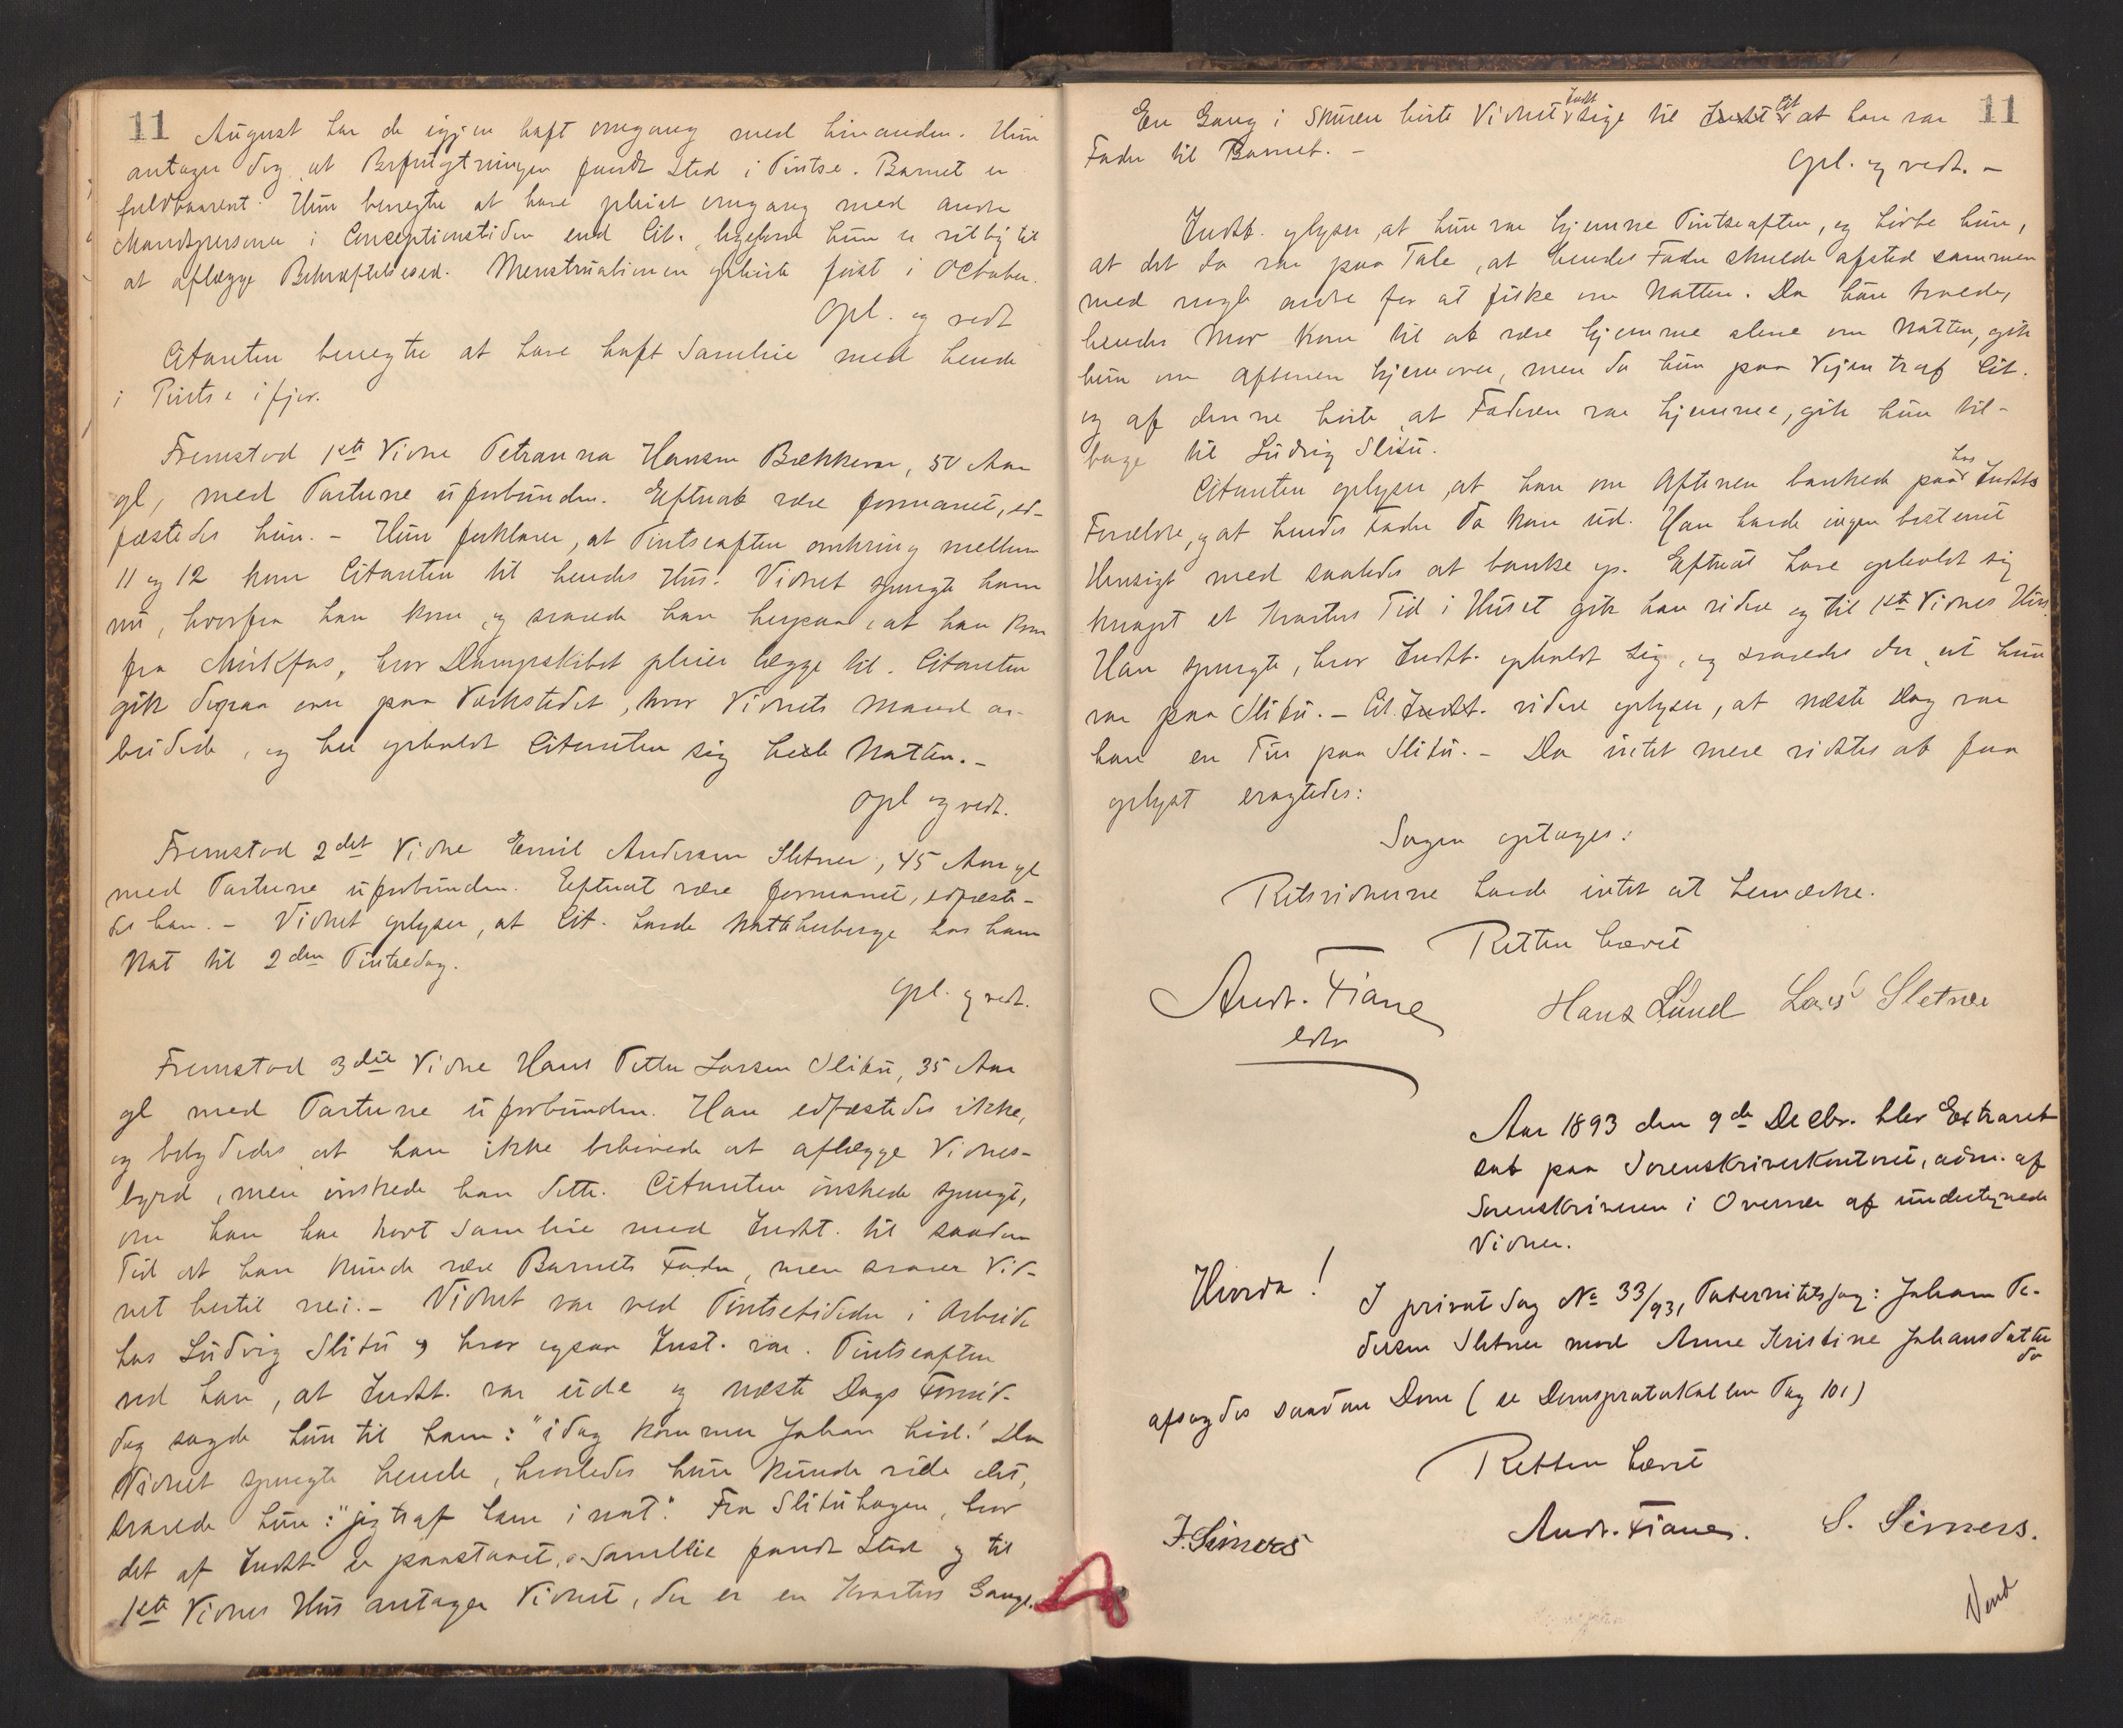 11 August har de igjen haft omgang med hinanden. Hun
antager dog, at Befrugtningen fandt Sted i Pintse. Barnet er
fuldbaarent. Hun benegter at have pleiet omgang med andre
Mandspersoner i Conceptionstiden end Cit. ligesom hun er villig til
at aflægge Bekræftelsesed. Menstruationen ophørte først i October.
Opl. og vedt
Citanten benegter at have haft Samleie med hende
i Pintse ifjor.
Fremstod 1ste Vidne Petranna Hansen Bækkevar, 50 Aar
gl, med Parterne uforbunden. Efterat være formanet, ed-
fæstedes hun. - Hun forklarer, at Pintseaften omkring mellem
11 og 12 kom Citanten til hendes Hus. Vidnet spurgte ham
nu, hvorfra han kom, og svarede han herpaa, at han kom
fra Mörkfos, hvor Dampskibet pleier lægge til. Citanten
gik derpaa over paa Værkstedet, hvor Vidnets Mand ar-
beidede, og her opholdt Citanten sig hele Natten. -
Opl og vedt.
Fremstod 2det Vidne Emil Andersen Sletner, 45 Aar gl
med Parterne uforbunden. Efterat være formanet, edfæste-
des han. - Vidnet oplyser, at Cit. havde Natteherberge hos ham
Nat til 2den Pintsedag.
Opl. og vedt.
Fremstod 3die Vidne Hans Petter Larsen Slitu, 35 Aar
gl med Parterne uforbunden. Han edfæstedes ikke,
og betydedes at han ikke behövede at aflægge Vidnes-
byrd, men önskede han dette. Citanten önskede spurgt,
om han har havt Samleie med Indst. til saadan
Tid at han kunde være Barnets Fader, men svarer Vid-
net hertil nei. - Vidnet var ved Pintsetider i Arbeide
hos Ludvig Slitu og hvor ogsaa Inst. var. Pintseaften
ved han, at Indst. var ude og næste Dags Formid-
dag sagde hun til ham: "idag kommer Johan hid!" Da
Vidnet spurgte hende, hvorledes hun kunde vide det,
svarede hun: "jeg traf ham i nat." Fra Slituhagen, hvor
det af Indst. er paastaaet, Samleie fandt Sted og til
1ste Vidnes Hus antager Vidnet, der er en Kvarters Gang.
En Gang i Skuren hørte Vidnet Indst sige til Indst Cit at han var 11
Fader til Barnet. -
Opl. og vedt. -
Indst. oplyser, at hun var hjemme Pintseaften, og hörte hun,
at det da var paa Tale, at hendes Fader skulde afsted sammen
med nogle andre for at fiske om Natten. Da hun troede,
hendes Mor kom til at være hjemme alene om Natten, gik
hun om Aftenen hjemover, men da hun paa Vejen traf Cit.
og af denne hörte, at Faderen var hjemme, gik hun til-
bage til Ludvig Slitu.
Citanten oplyser, at han om Aftenen bankede paa hos Indsts
Forældre, og at hendes Fader da kom ud. Han havde ingen bestemt
Hensigt med saaledes at banke op. Efterat have opholdt sig
knapt et Kvarters Tid i Huset gik han videre og til 1ste Vidnes Hus.
Han spurgte, hvor Indst. opholdt sig, og svaredes der, at hun
var paa Slitu. - Cit. Indst. videre oplyser, at næste Dag var
han en Tur paa Slitu. - Da intet mere vidstes at faa
oplyst eragtedes:
Sagen optages.
Retsvidnerne havde intet at bemærke.
Retten hævet
Andr. Fiane
edsv
Hans Lund Lars Sletner
Aar 1893 den 9de Decbr. blev Extraret
sat paa Sorenskriverkontoret, adm. af
Sorenskriveren i Overvær af undertegnede
Vidner.
Hvorda!
I privat Sag No 33/93, Paternitetssag: Johan Pe-
dersen Sletner mod Anne Kristine Johansdatter
da
afsagdes saadan Dom (se Domsprotokollen Pag 101)
Retten hævet
Andr. Fiane. S. Simers.
J. Simers
Vend